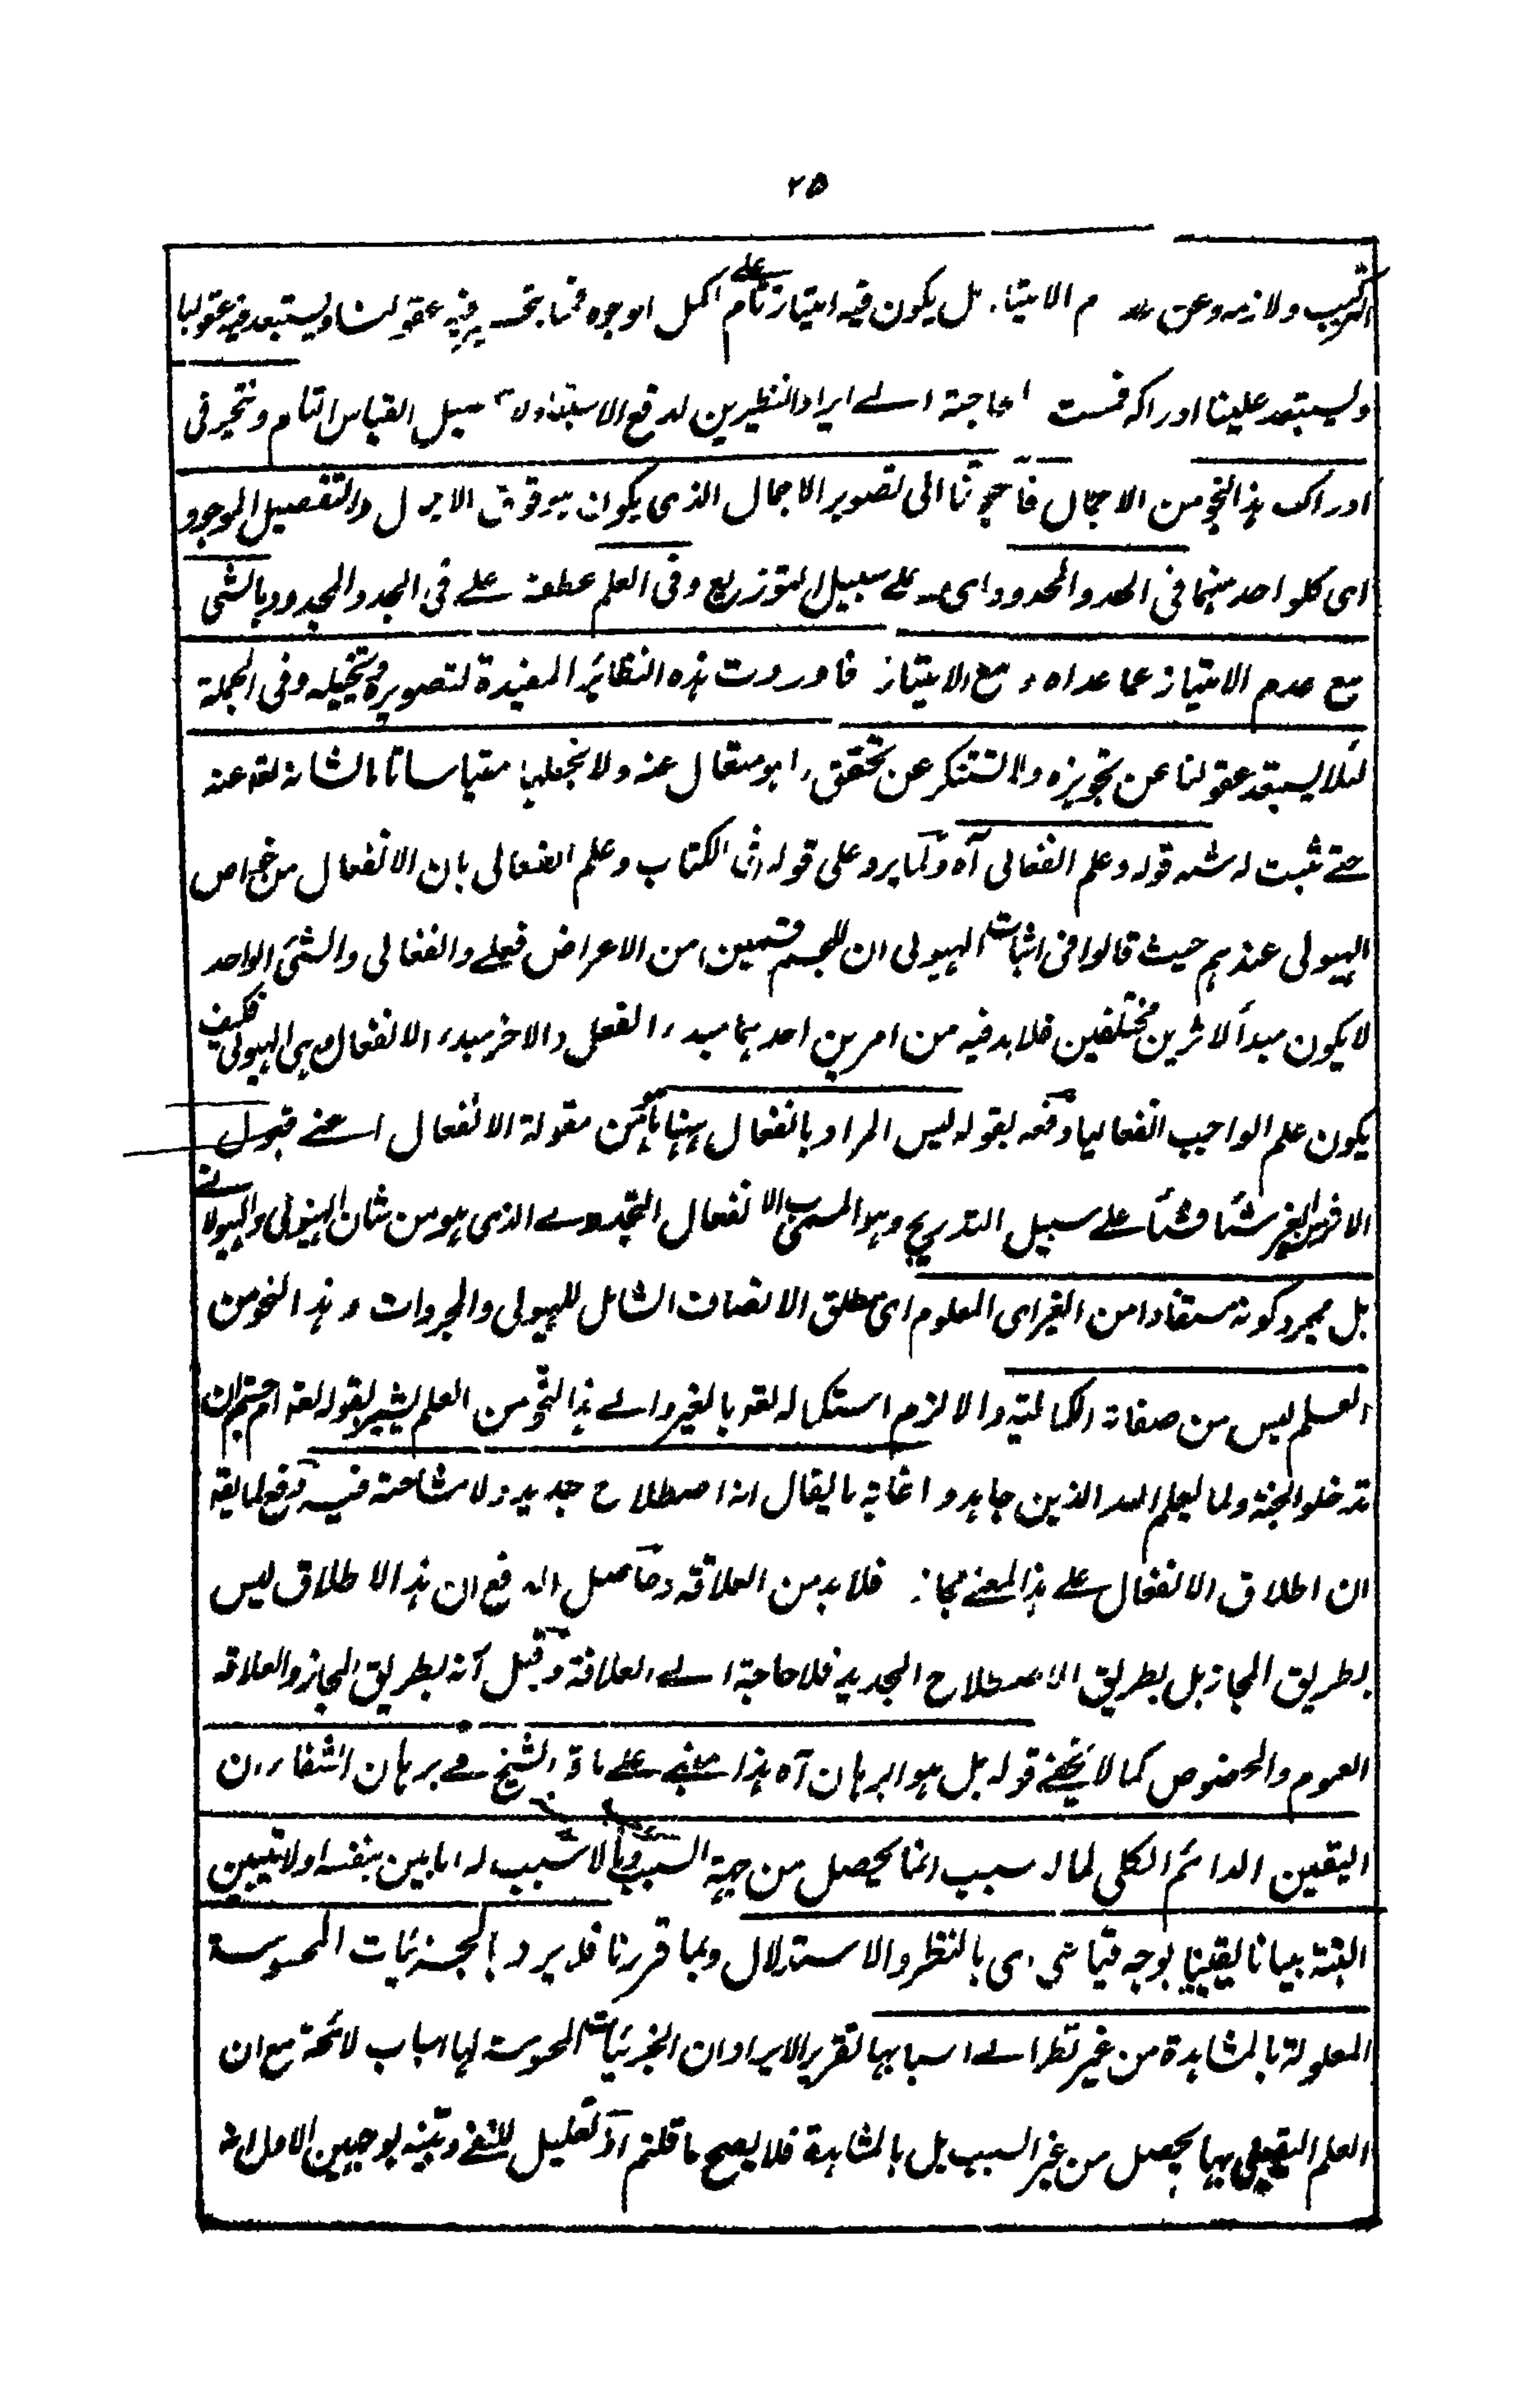 ۲۵
التركيب ولازمه وعن م الامتياز بل يكون فيه امتياز تام على اكمل الوجوه فيه عقولنا ويستبعد فيه عقولنا
وليستبعد علينا ادراكه فمست الحاجة الے ايراد النظيرين لدفع الاستبعاد لا سبيل القياس التام ونتحير فى
ادراك هذا النحو من الاجمال فاحوجنا الى تصوير الاجمال الذى يكون هو فوق الاجمال والتفصيل الموجود
اى كلواحد منهما فى الحد والمحدود اى علے سبيل التوزيع وفى العلم عطف علے فى الحد والمحدود بالشى
مع عدم الامتياز عما عداه و مع الامتياز فاوردت هذه النظائر المفيدة لتصويره وتخييله وفى الجملة
لئلا يستبعد عقولنا عن تجويزه ولا تستنكر عن تحقق ما هو متعال عنه ولا نجعلها مقياسا تاما لشانه تعه عنه
حتے تثبت له قوله وعلم انفعالى آه ولما يرد على قوله فى الكتاب وعلم انفعالى بان الانفعال من خواص
الهيولى عندهم حيث قالوا فى اثبات الهيولى ان للجسم قسمين من الاعراض فعلے وانفعالى والشئ الواحد
لا يكون مبدأ لاثرين مختلفين فلا بد فيه من امرين احدهما مبدء الفعل والاخر مبدء الانفعال وهى الهيولى فكيف
يكون علم الواجب انفعاليا دفعه بقوله ليس المراد بانفعال ههنا من مقولة الانفعال اعنے قبول
الاثر من الغير شئا فشئا علے سبيل التدريج وهو المسمى بالانفعال التجددے الذى هو من شان الهيولى والهيولانے
بل مجرد كونه مستفادا من الغير اى المعلوم اى مطلق الاتصاف الشامل للهيولى والمجردات و هذا النحو من
العلم ليس من صفاته الكمالية والا لزم استكماله تعه بالغير والے هذا النحو من العلم يشير بقوله تعه ام حسبتم ان
تدخلوا الجنة ولما يعلم الله الذين جاهدوا غاية ما يقال انه اصطلاح جديد ولا مشاحة فيه دفع لما يقه
ان اطلاق الانفعال علے هذا المعنے مجاز فلا بد من العلاقه وحاصل الدفع ان هذا الاطلاق ليس
بطريق المجاز بل بطريق الاصطلاح الجديد فلا حاجة الے العلاقة وقيل انه بطريق المجاز والعلاقه
العموم والخصوص كما لا يخفے قوله بل هو البرهان آه هذا مبنے علے ما قال الشيخ فے برهان الشفاء ان
اليقين الدائم الكلى لما له سبب انما يحصل من جهة السبب وما لا سبب له اما بين بنفسه او لا يتبين
البتة بيانا يقينيا بوجه قياسى اى بالنظر والاستدلال وبما قررنا فلا يرد بالجزئيات المحسوسة
المعلولة بالمشاهدة من غير نظر الے اسبابها تقرير الايراد ان الجزئيات المحسوسة لها اسباب لائحة مع ان
العلم اليقينى بها يحصل من غير السبب بل بالمشاهدة فلا يصح ما قلتم اذ تعليل للنفے وبينه بوجهين الاول انه